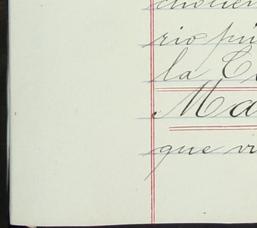 rio pú
la C
Ma
que vi